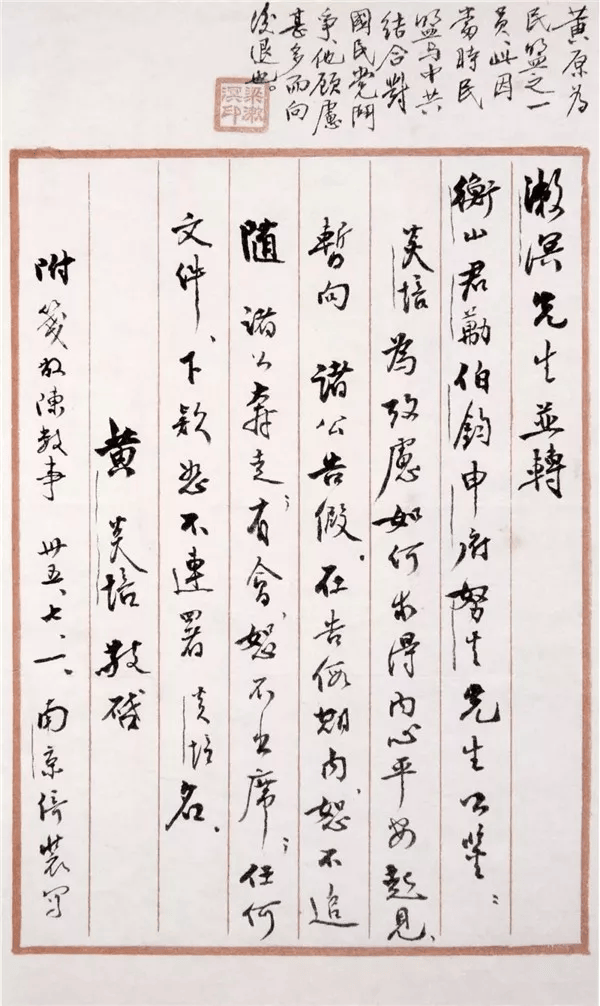 黄原为
民盟之一
员,此因
当时民
盟与中共
结合对
国民党鬥
争,他顾慮
甚多而向
後退也。
梁漱
溟印
漱溟先生並轉
衡山君勱伯鈞申府努生先生公鉴:
炎培為攷慮如何求得内心平安起見、
暫向 諸公告假。在告假期内、恕不追
随 諸公奔走;有會、恕不出席;任何
文件、下款恕不連署 炎培名、
黄炎培敬啓
附箋敬陳數事 卅五、七、一、南京倚裝写